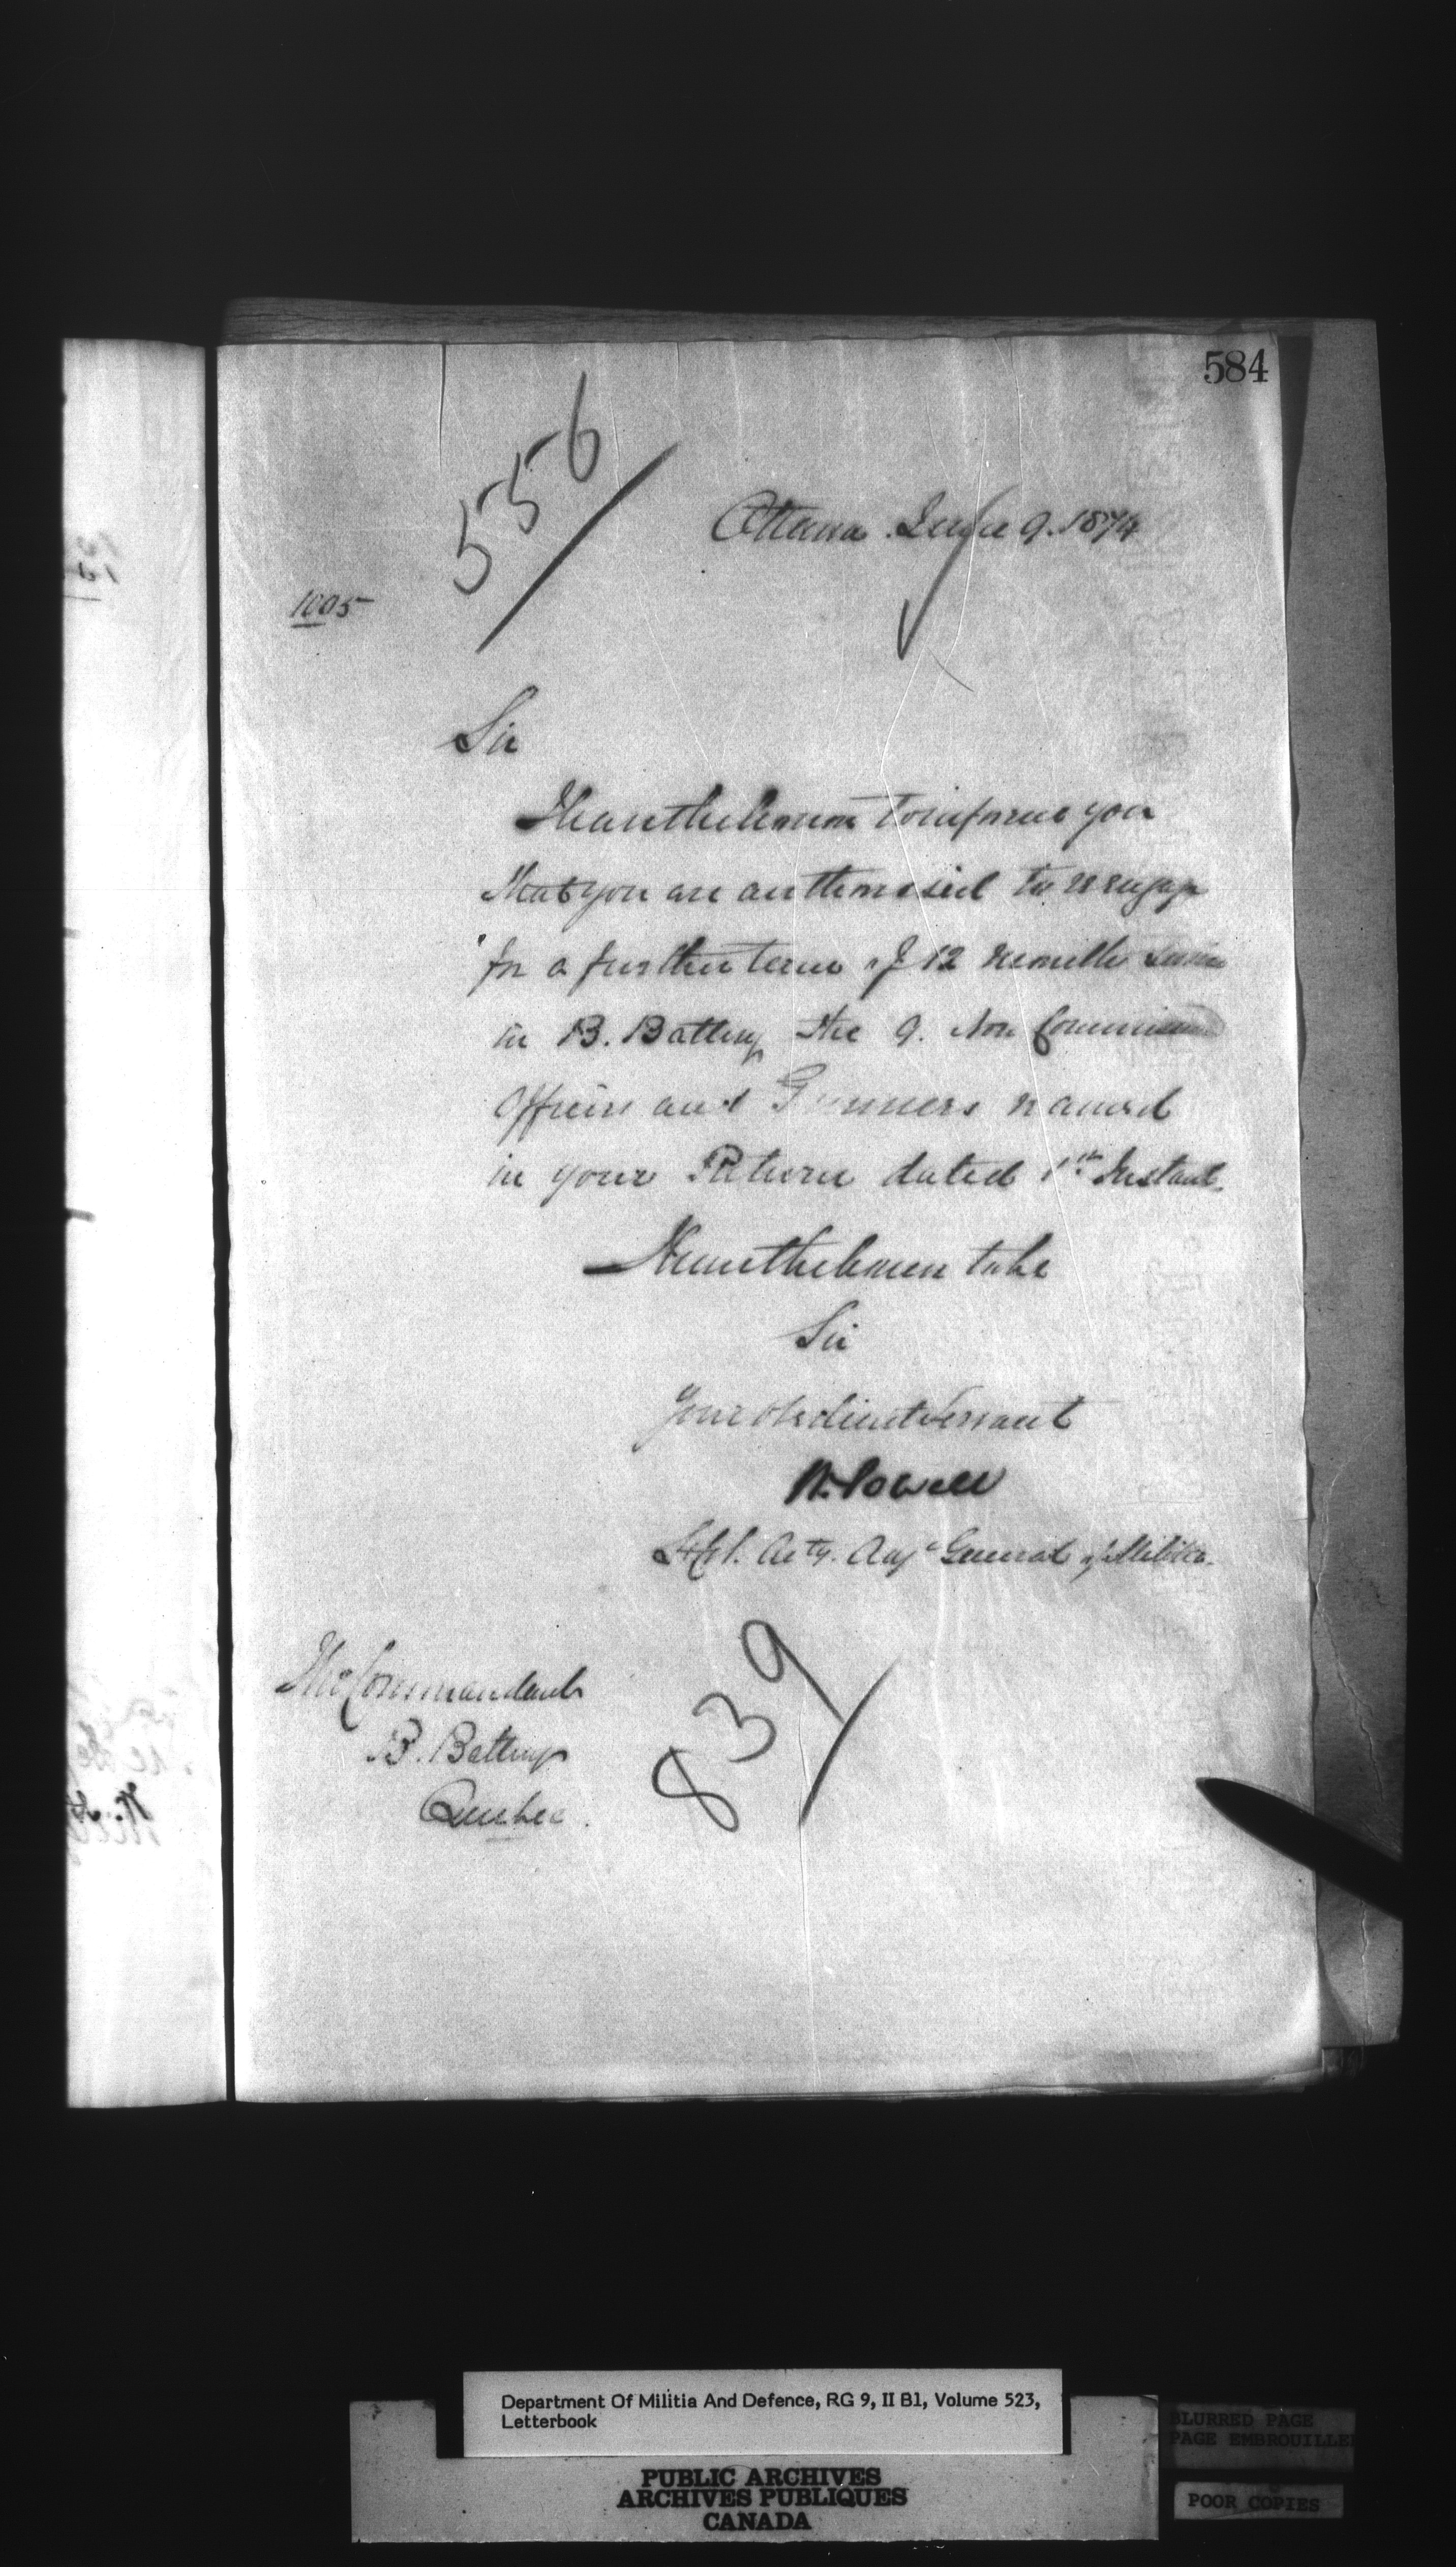 584
556
Ottawa. June 9. 1874
1005
Sir
I have the honor to inform you
that you are authorised to reengage
for a further term of 12 months service
in B. Battery the 9. Non Commissioned
Officers and Gunners named
in your Return dated 1st Instant.
I have the honor to be
Sir
Your obedient Servant
W. Powell
Lt Col. Actg. Adjt General of Militia.
The Commandant
B. Battery
Quebec.
839
Department Of Militia And Defence, RG 9, II B1, Volume 523,
Letterbook
PUBLIC ARCHIVES
ARCHIVES PUBLIQUES
CANADA
BLURRED PAGE
PAGE EMBROUILLE
POOR COPIES